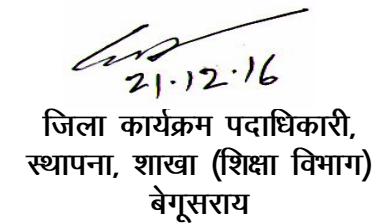 21.12.16
जिला कार्यक्रम पदाधिकारी,
स्थापना, शाखा (शिक्षा विभाग)
बेगूसराय